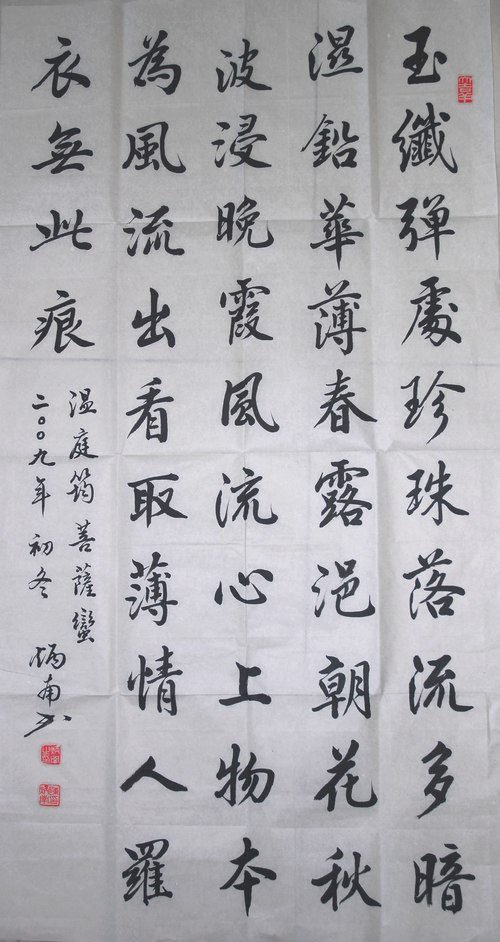 玉纖弹處珍珠落流多暗
濕鉛華薄春露浥朝花秋
波浸晚霞風流心上物本
為風流出看取薄情人羅
衣無此痕
温庭筠菩薩蠻
二〇〇九年初冬炳南书